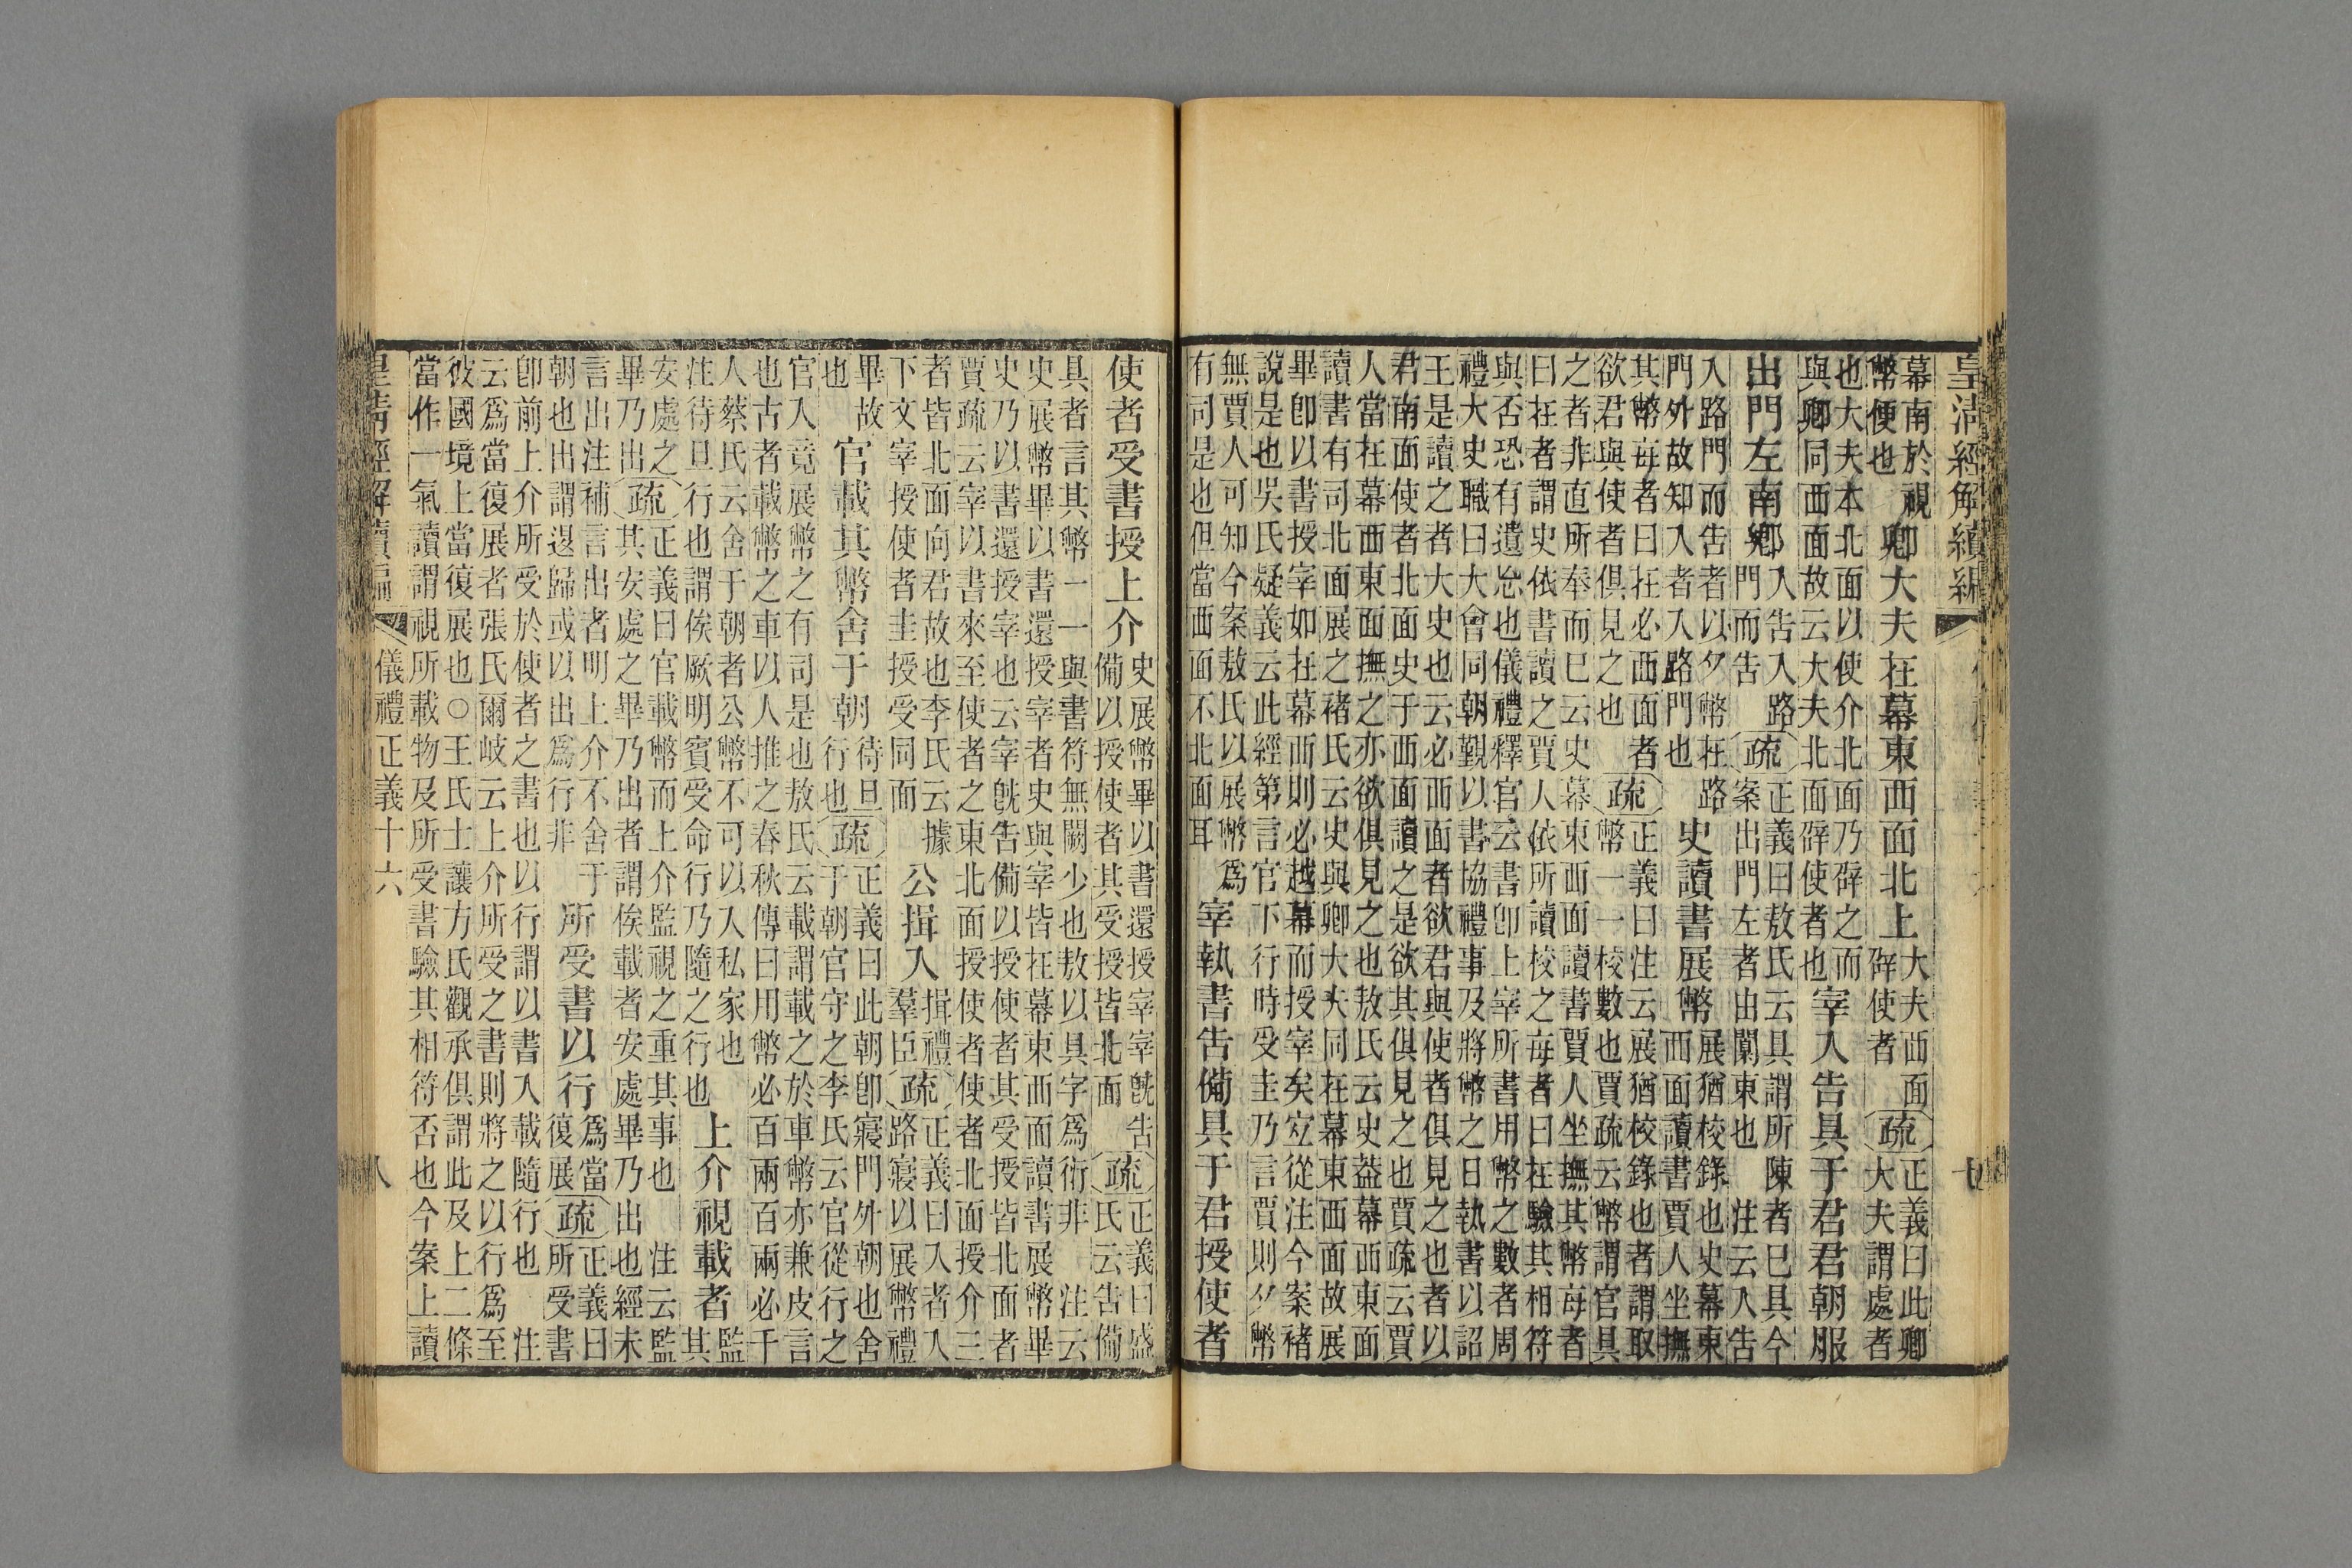 皇清經解續編 七
幕南於視幣便也卿大夫在幕東西面北上大夫西面辟使者疏正義曰此卿大夫謂處者
也大夫本北面以使介北面乃辟之而與卿同西面故云大夫北面辟使者也宰入告具于君君朝服
出門左南鄉入告入路門而告疏正義曰敖氏云具謂所陳者巳具今案出門左者由闑東也 注云入告
入路門而告者以夕幣在路門外故知入者入路門也史讀書展幣展猶校錄也史幕東西面讀書賈人坐撫
其幣每者曰在必西面者欲君與使者俱見之也疏正義曰注云展猶校錄也者謂取幣一一校數也賈疏云幣謂官具
之者非直所奉而巳云史幕東西面讀書賈人坐撫其幣每者曰在者謂史依書讀之賈人依所讀校之每者曰在驗其相符
與否恐有遺忘也儀禮釋官云書卽上宰所書用幣之數者周禮大史職曰大會同朝覲以書協禮事及將幣之日執書以詔
王是讀之者大史也云必西面者欲君與使者俱見之也者以君南面使者北面史于西面讀之是欲其俱見之也賈疏云賈
人當在幕西東面撫之亦欲俱見之也敖氏云史蓋幕西東面讀書有司北面展之褚氏云史與卿大夫同在幕東西面故展
畢卽以書授宰如在幕西則必越幕而授宰矣宜從注今案褚說是也吳氏疑義云此經第言官下行時受圭乃言賈則夕幣
無賈人可知今案敖氏以展幣爲有司是也但當西面不北面耳宰執書告備具于君授使者
使者受書授上介史展幣畢以書還授宰宰旣告備以授使者其受授皆北面疏正義曰盛氏云告備
具者言其幣一一與書符無闕少也敖以具字爲衍非 注云史展幣畢以書還授宰者史與宰皆在幕東西面讀書展幣畢
史乃以書還授宰也云宰旣告備以授使者其受授皆北面者賈疏云宰以書來至使者之東北面授使者使者北面授介三
者皆北面向君故也李氏云據下文宰授使者圭授受同面公揖入揖禮羣臣疏正義曰入者入路寢以展幣禮
畢故也官載其幣舍于朝待旦行也疏正義曰此朝卽寢門外朝也舍于朝官守之李氏云官從行之
官入竟展幣之有司是也敖氏云載謂載之於車幣亦兼皮言也古者載幣之車以人推之春秋傳曰用幣必百兩百兩必千
人蔡氏云舍于朝者公幣不可以入私家也 注待旦行也謂俟厥明賓受命行乃隨之行也上介視載者監其
安處之畢乃出疏正義曰官載幣而上介監視之重其事也 注云監其安處之畢乃出者謂俟載者安處畢乃出也經未
言出注補言出者明上介不舍于朝也出謂退歸或以出爲行非所受書以行爲當復展疏正義曰所受書
卽前上介所受於使者之書也以行謂以書入載隨行也 注云爲當復展者張氏爾岐云上介所受之書則將之以行爲至
彼國境上當復展也○王氏士讓方氏觀承俱謂此及上二條當作一氣讀謂視所載物及所受書驗其相符否也今案上讀
皇清經解續編 儀禮正義十六 八